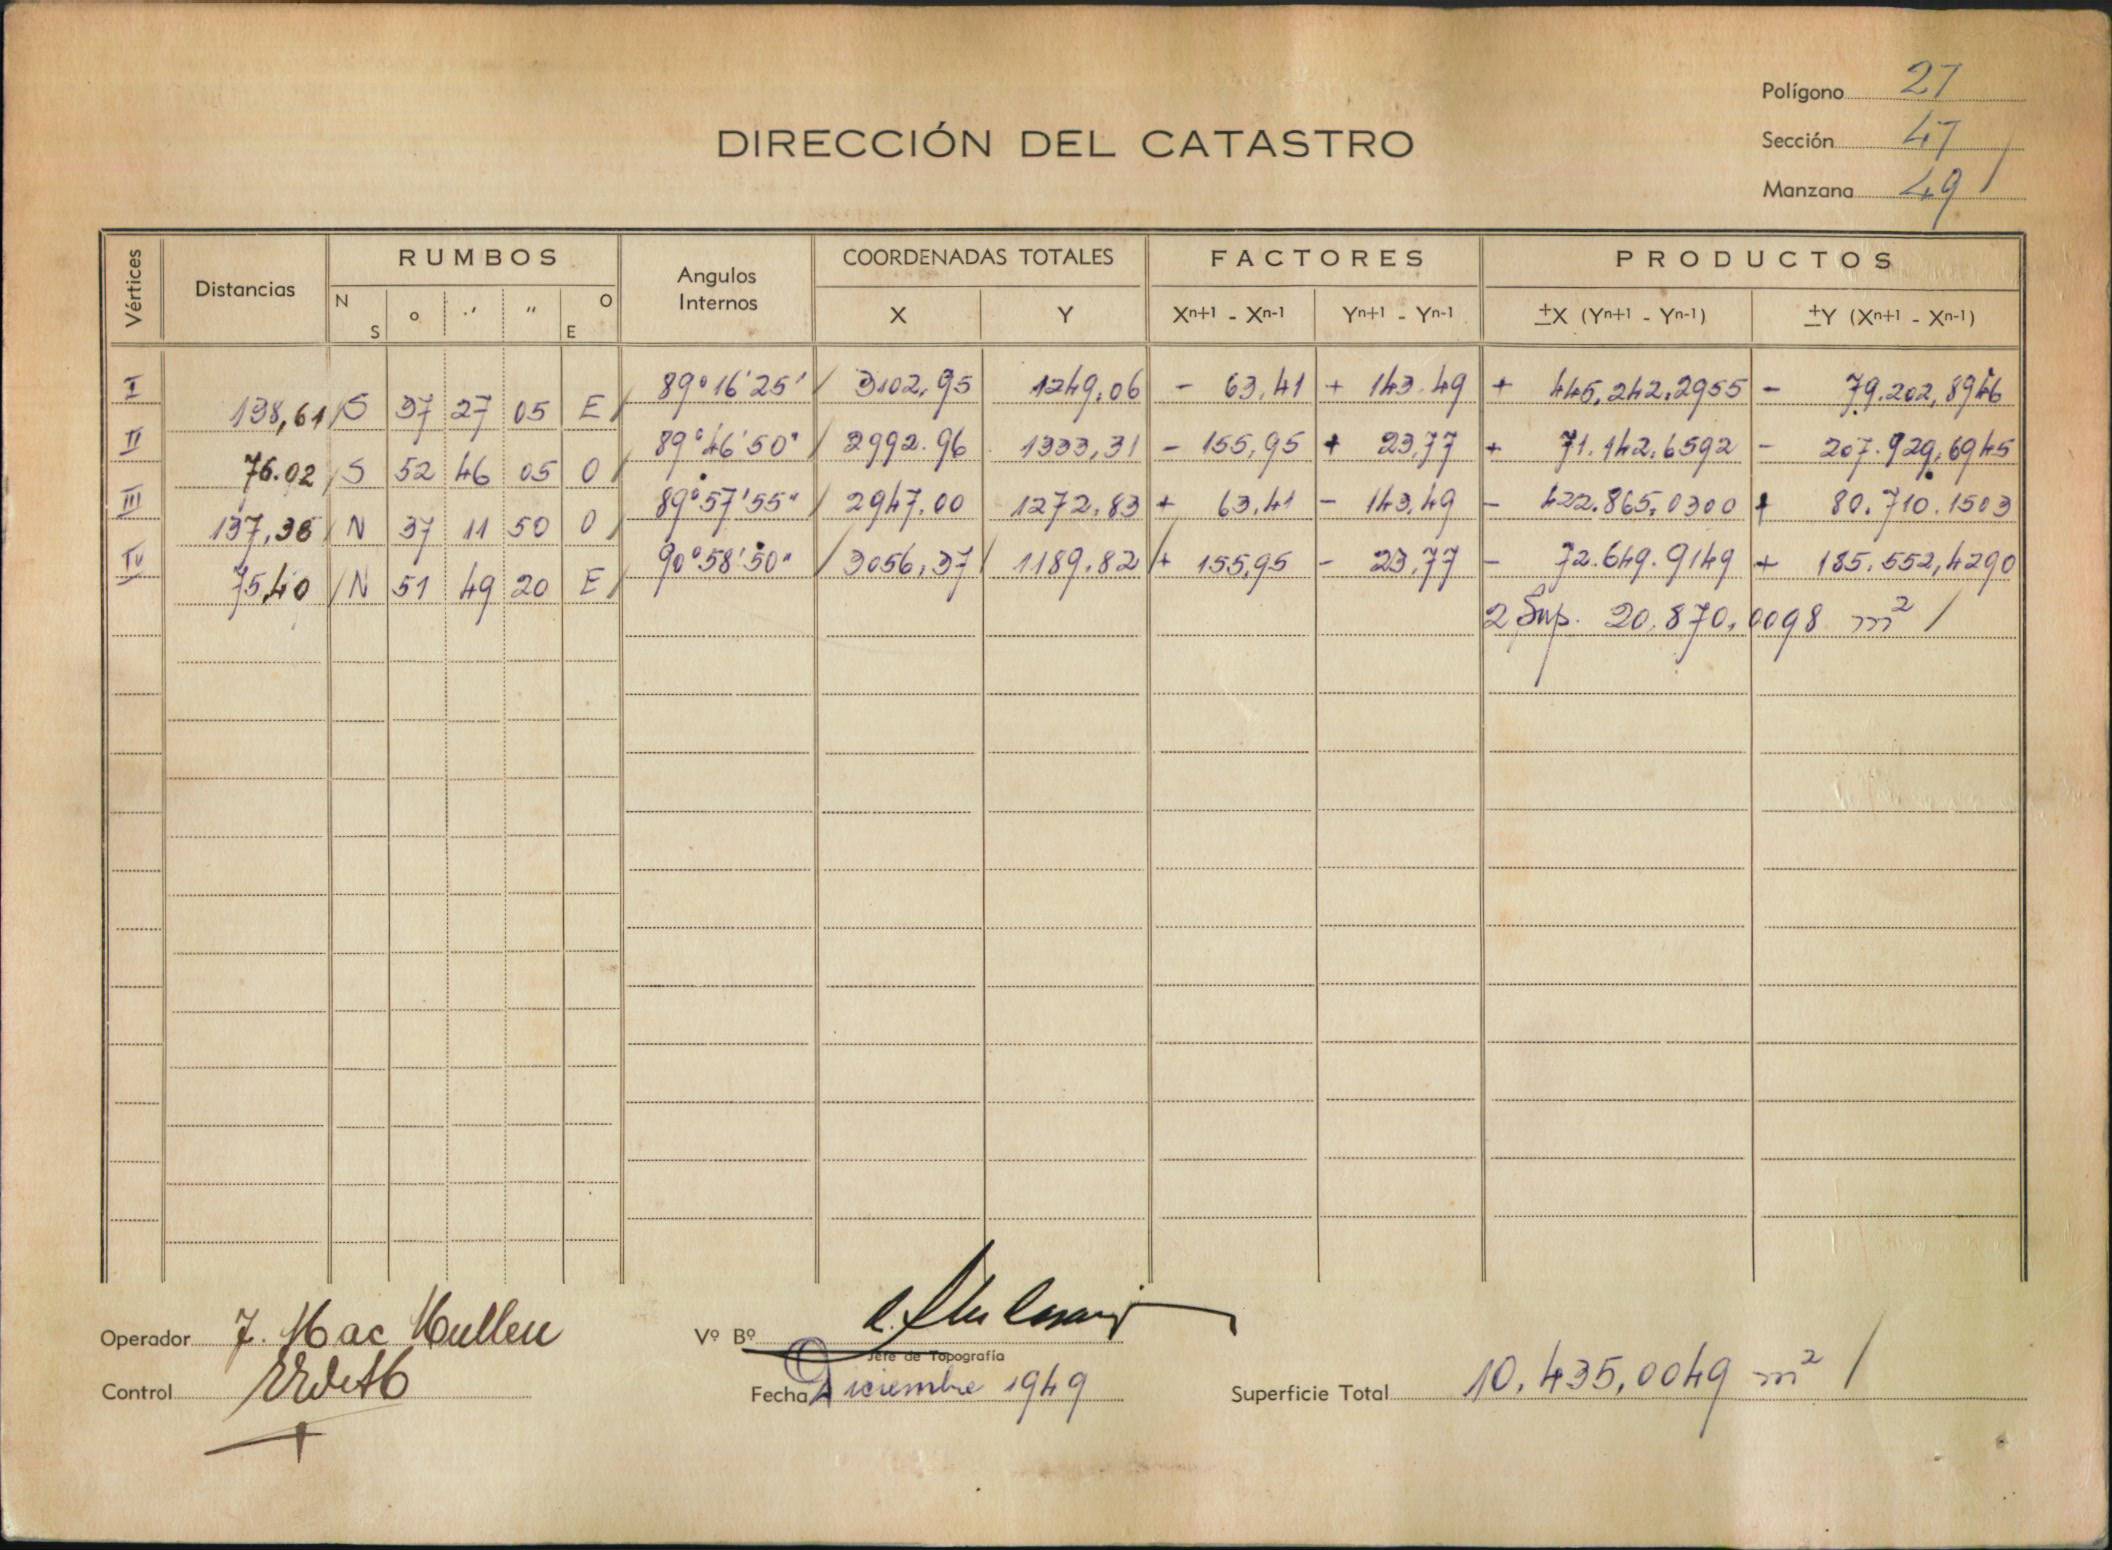 Polígono 27
DIRECCIÓN DEL CATASTRO
Sección 47
Manzana 49
Vértices Distancias RUMBOS Angulos Internos COORDENADAS TOTALES FACTORES PRODUCTOS
N S ° ' " O E X Y Xn+1 - Xn-1 Yn+1 - Yn-1 ±X (Yn+1 - Yn-1) ±Y (Xn+1 - Xn-1)
I 89°16'25' / 3102,95 1249,06 - 63,41 + 143.49 + 445.242,2955 - 79.202,8946
138,61 / S 37 27 05 E /
II 89°46'50" / 2992.96 1333,31 - 155,95 + 23,77 + 71.142,6592 - 207.929,6945
76.02 / S 52 46 05 O /
III 89°57'55" / 2947,00 1272,83 + 63,41 - 143,49 - 422.865,0300 + 80.710.1503
137,36 / N 37 11 50 O /
IV 90°58'50" / 3056,37 / 1189,82 / + 155,95 - 23,77 - 72.649.9149 + 185.552,4290
75,40 / N 51 49 20 E /
2 Sup. 20.870,0098 m² /
Operador 7. Mac Mullen Vº Bº
Jefe de Topografía
Control Fecha Diciembre 1949 Superficie Total 10.435,0049 m² /